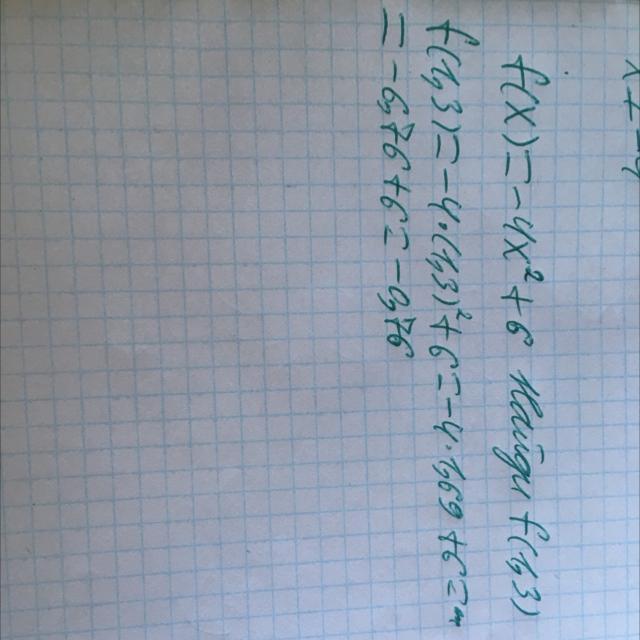 f(x) = -4x² + 6 Найди f(1,3)
f(1,3) = -4·(1,3)² + 6 = -4·1,69 + 6 =
= -6,76 + 6 = -0,76